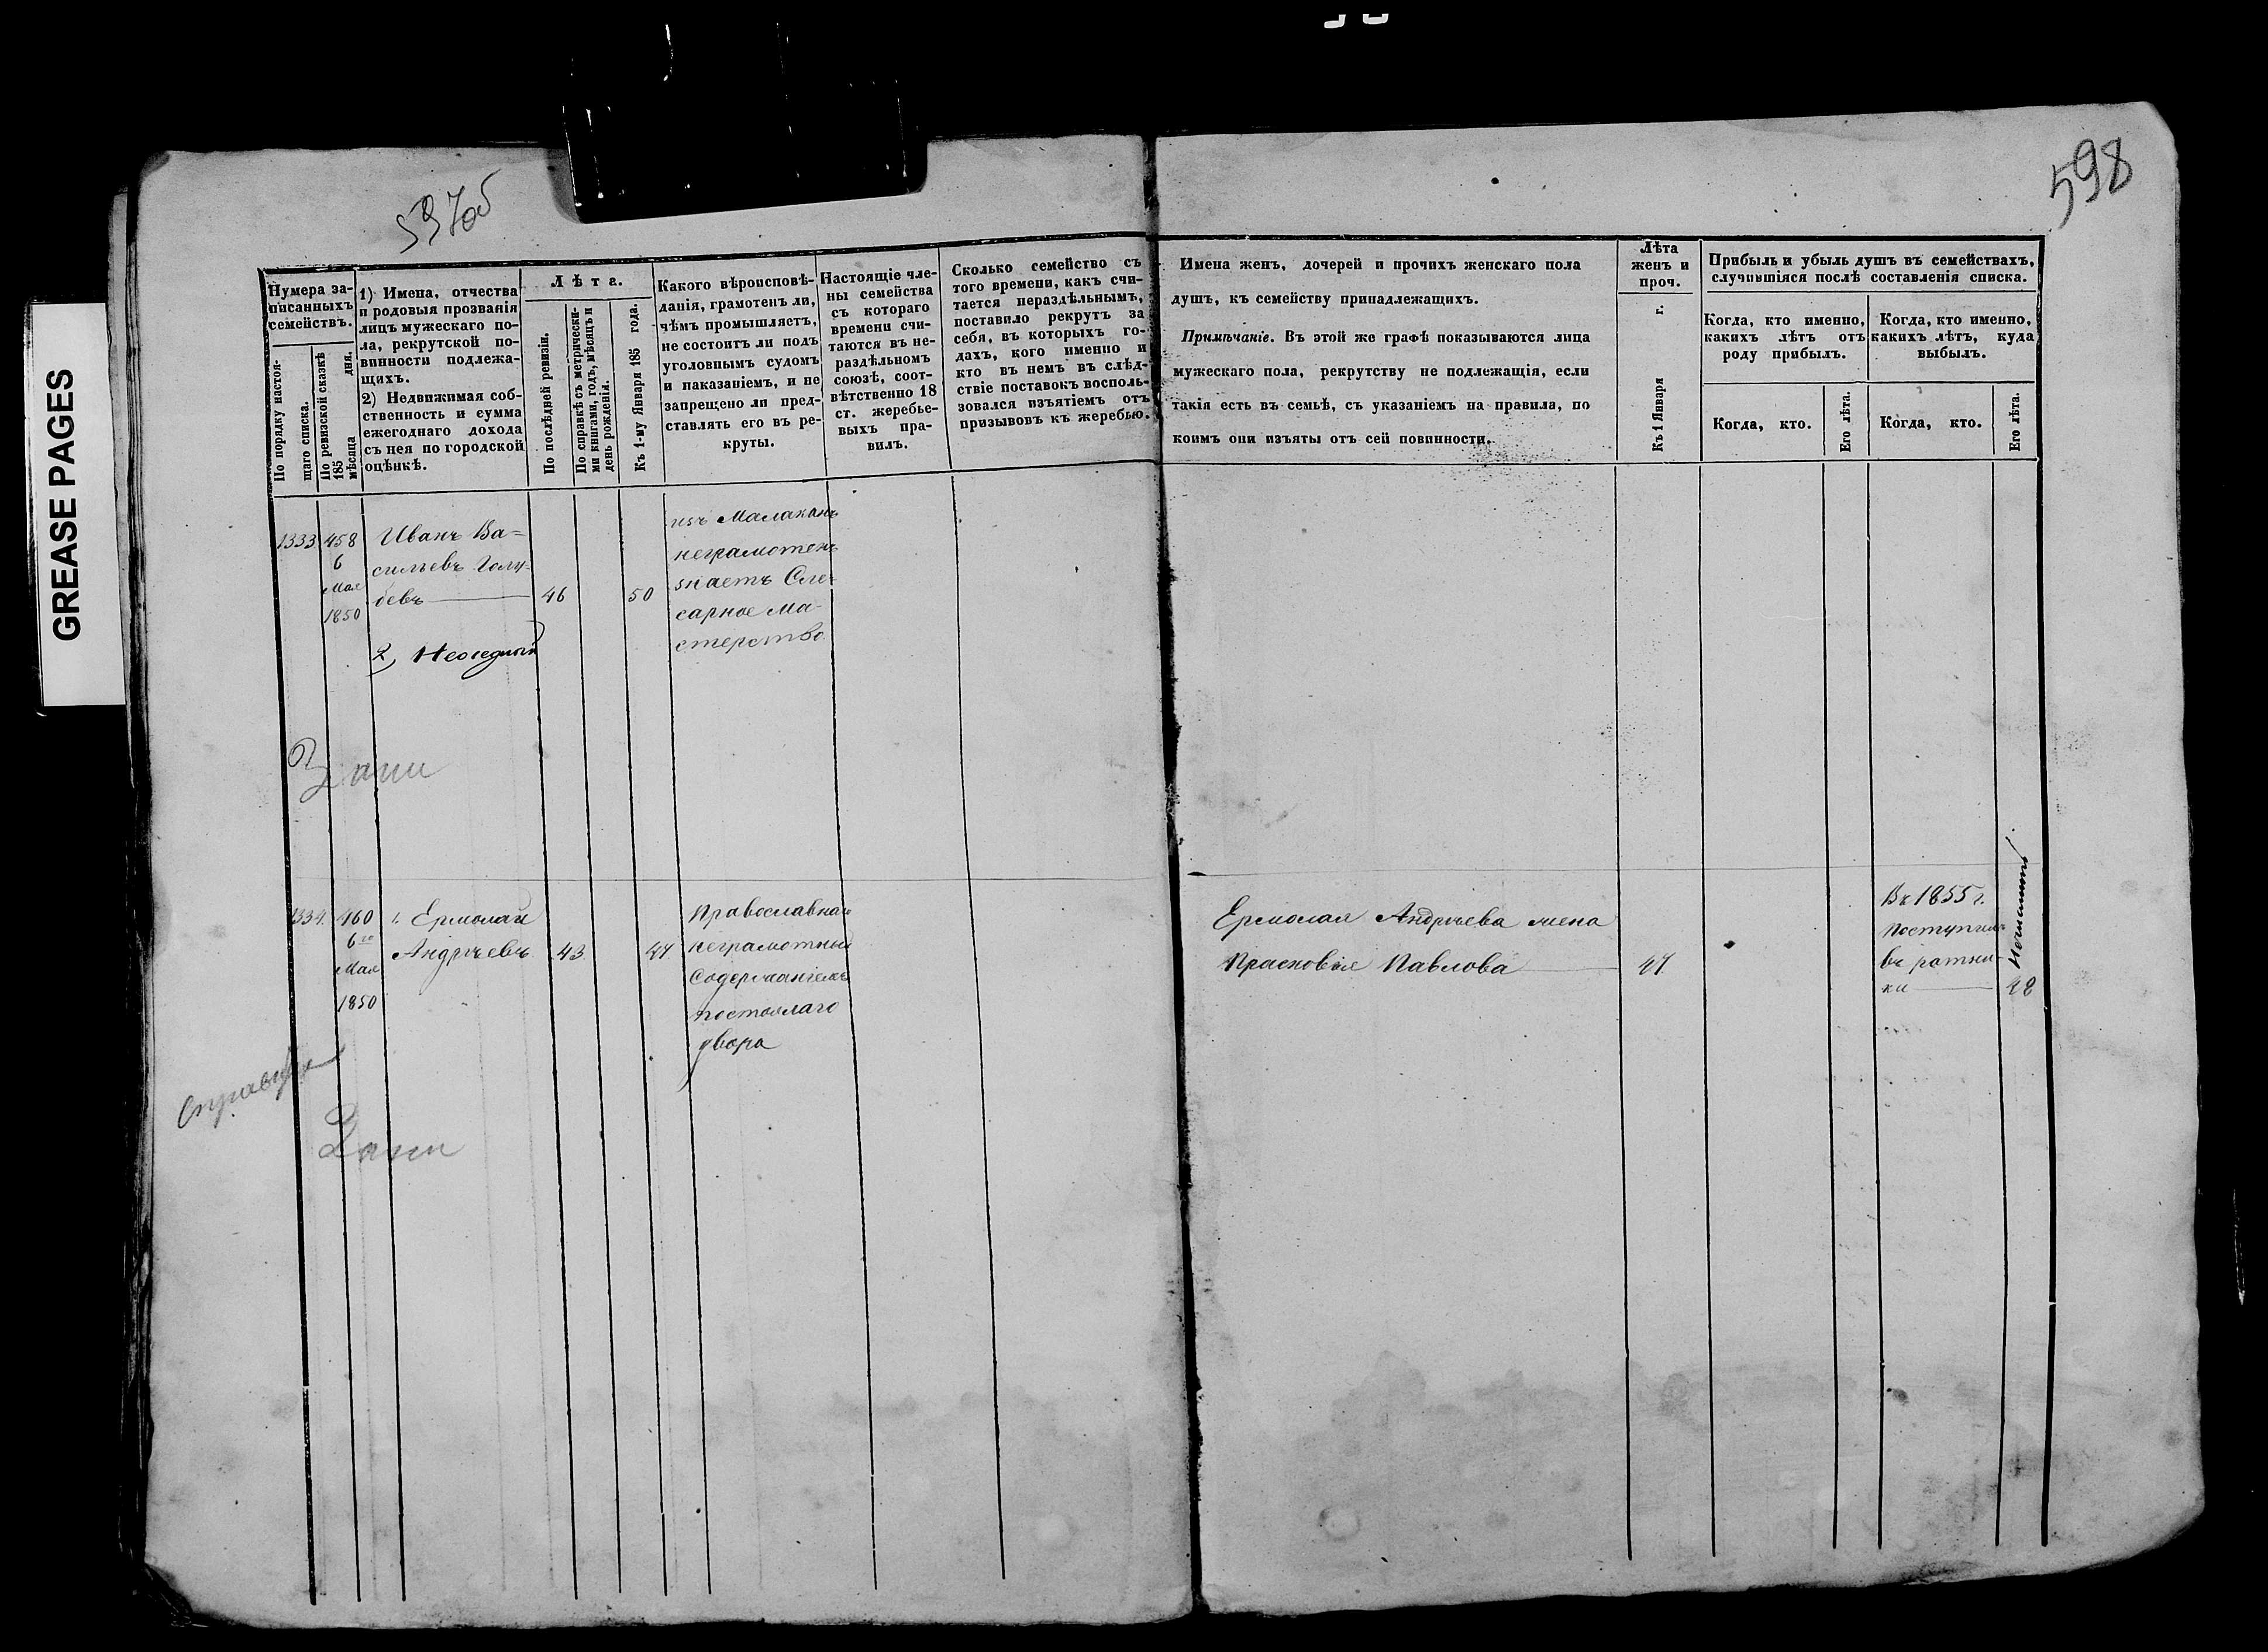 GREASE PAGES
597об
598
Нумера за-
писанныхъ
семействъ.
По порядку настоя-
щаго списка.
По ревизской сказкѣ
185
мѣсяца дня.
1) Имена, отчества
и родовыя прозванія
лицъ мужескаго по-
ла, рекрутской по-
винности подлежа-
щихъ.
2) Недвижимая соб-
ственность и сумма
ежегоднаго дохода
съ нея по городской
оцѣнкѣ.
Лѣта.
По послѣдней ревизіи.
По справкѣ съ метрически-
ми книгами, годъ, мѣсяцъ и
день рожденія.
Къ 1-му Января 185 года.
Какого вѣроисповѣ-
данія, грамотенъ ли,
чѣмъ промышляетъ,
не состоитъ ли подъ
уголовнымъ судомъ
и наказаніемъ, и не
запрещено ли пред-
ставлять его въ ре-
круты.
Настоящіе чле-
ны семейства
съ котораго
времени счи-
таются въ не-
раздѣльномъ
союзѣ, соот-
вѣтственно 18
ст. жеребье-
выхъ пра-
вилъ.
Сколько семейство съ
того времени, какъ счи-
тается нераздѣльнымъ,
поставило рекрутъ за
себя, въ которыхъ го-
дахъ, кого именно и
кто въ немъ въ слѣд-
ствіе поставокъ восполь-
зовался изъятіемъ отъ
призывовъ къ жеребью.
Имена женъ, дочерей и прочихъ женскаго пола
душъ, къ семейству принадлежащихъ.
Примѣчаніе. Въ этой же графѣ показываются лица
мужескаго пола, рекрутству не подлежащія, если
такія есть въ семьѣ, съ указаніемъ на правила, по
коимъ они изъяты отъ сей повинности.
Лѣта
женъ и
проч.
Къ 1 Января г.
Прибыль и убыль душъ въ семействахъ,
случившіяся послѣ составленія списка.
Когда, кто именно,
какихъ лѣтъ отъ
роду прибылъ.
Когда, кто именно,
какихъ лѣтъ, куда
выбылъ.
Когда, кто.
Его лѣта.
Когда, кто.
Его лѣта.
1333
458
6
Мая
1850
Иванъ Ва-
сильевъ Голу-
бевъ
46
50
изъ Малаканъ
неграмотенъ
знаетъ Сле-
сарное Ма-
стерство
2, Неоседлый
1334.
460
6го
Мая
1850
1. Ермолай
Андрѣевъ
43
47
Православнаго
неграмотный
Содержаніемъ
постоялаго
двора
Ермолая Андрѣева жена
Прасковья Павлова
47
Въ 1855 г.
поступилъ
въ ратни-
ки
48
Справка